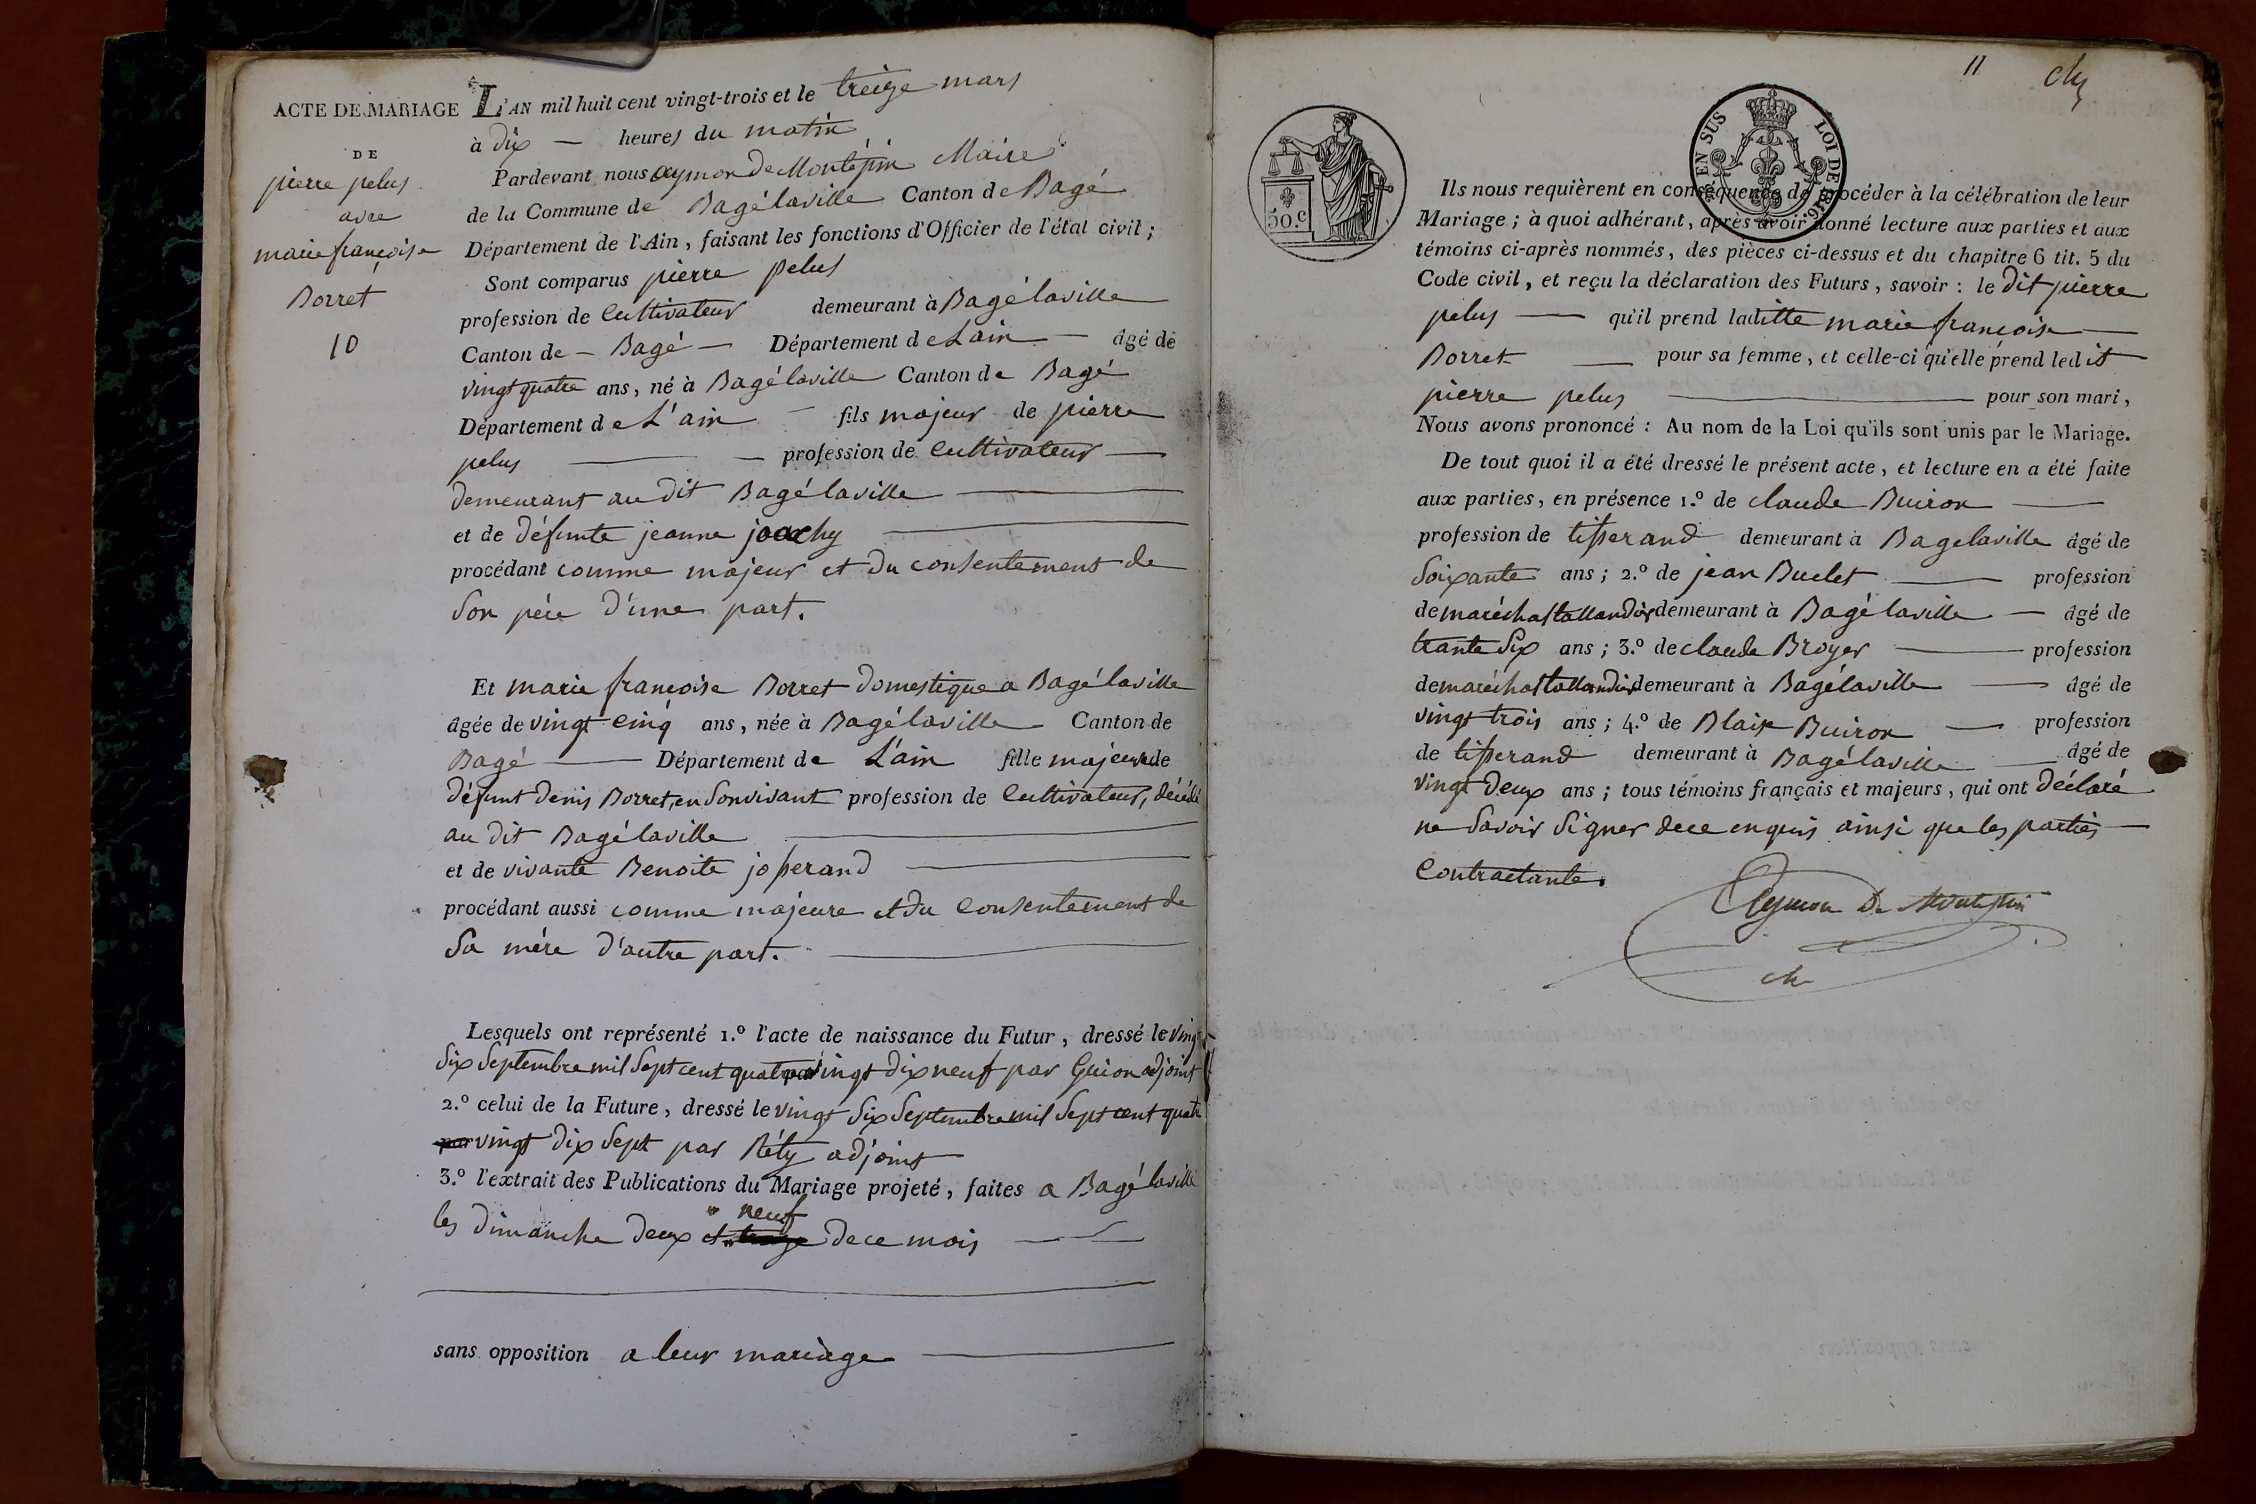 ACTE DE MARIAGE
DE
pierre pelus
avec
marie françoise
Borret
10
L'AN mil huit cent vingt-trois et le treize mars
à dix — heures du matin
Pardevant nous aymon De Montépin Maire
de la Commune de Bagélaville Canton de Bagé
Département de l'Ain, faisant les fonctions d'Officier de l'état civil;
Sont comparus pierre pelus
profession de Cultivateur demeurant à Bagélaville
Canton de — Bagé — Département de Lain — âgé de
vingt quatre ans, né à Bagélaville Canton de Bagé
Département de L'ain — fils majeur de pierre
pelus — — profession de Cultivateur —
demeurant au dit Bagélaville —
et de défunte jeanne
procédant comme majeur et du consentement de
Son pére d'une part.
Et marie françoise Borret domestique a Bagélaville
âgée de vingt cinq ans, née à Bagélaville Canton de
Bagé — Département de L'ain fille majeure de
défunt denis Borret, en Sonvivant profession de Cultivateur, décédé
au dit Bagélaville —
et de vivante Benoite josserand —
procédant aussi comme majeure et du Consentement de
Sa mére d'autre part. —
Lesquels ont représenté 1.º l'acte de naissance du Futur, dressé le vingt
Six Septembre mil Sept cent quatre vingt dix neuf par Guion adjoint
2.º celui de la Future, dressé le vingt Six Septembre mil Sept cent quatre
vingt dix Sept par Réty adjoint
3.º l'extrait des Publications du Mariage projeté, faites a Bagélaville
neuf
les dimanche deux et treize de ce mois —
sans opposition a leur mariage —
11
EN SUS
LOI DE 1816
30.c
Ils nous requièrent en conséquence de procéder à la célébration de leur
Mariage; à quoi adhérant, après avoir donné lecture aux parties et aux
témoins ci-après nommés, des pièces ci-dessus et du chapitre 6 tit. 5 du
Code civil, et reçu la déclaration des Futurs, savoir: le dit pierre
pelus — qu'il prend laditte marie françoise —
Borret — pour sa femme, et celle-ci qu'elle prend ledit
pierre pelus — pour son mari,
Nous avons prononcé: Au nom de la Loi qu'ils sont unis par le Mariage.
De tout quoi il a été dressé le présent acte, et lecture en a été faite
aux parties, en présence 1.º de claude Buiron —
profession de tisserand demeurant à Bagelaville âgé de
Soixante ans; 2.º de jean Buclet — profession
de maréchal tallandier demeurant à Bagélaville — âgé de
trante Six ans; 3.º de claude Broyer — profession
de maréchal tallandier demeurant à Bagélaville — âgé de
vingt trois ans; 4.º de Blaise Buiron — profession
de tisserand demeurant à Bagélaville — âgé de
vingt Deux ans; tous témoins français et majeurs, qui ont déclaré
ne Savoir Signer de ce enquis ainsi que les parties —
Contractante.
Aymon De Montépin